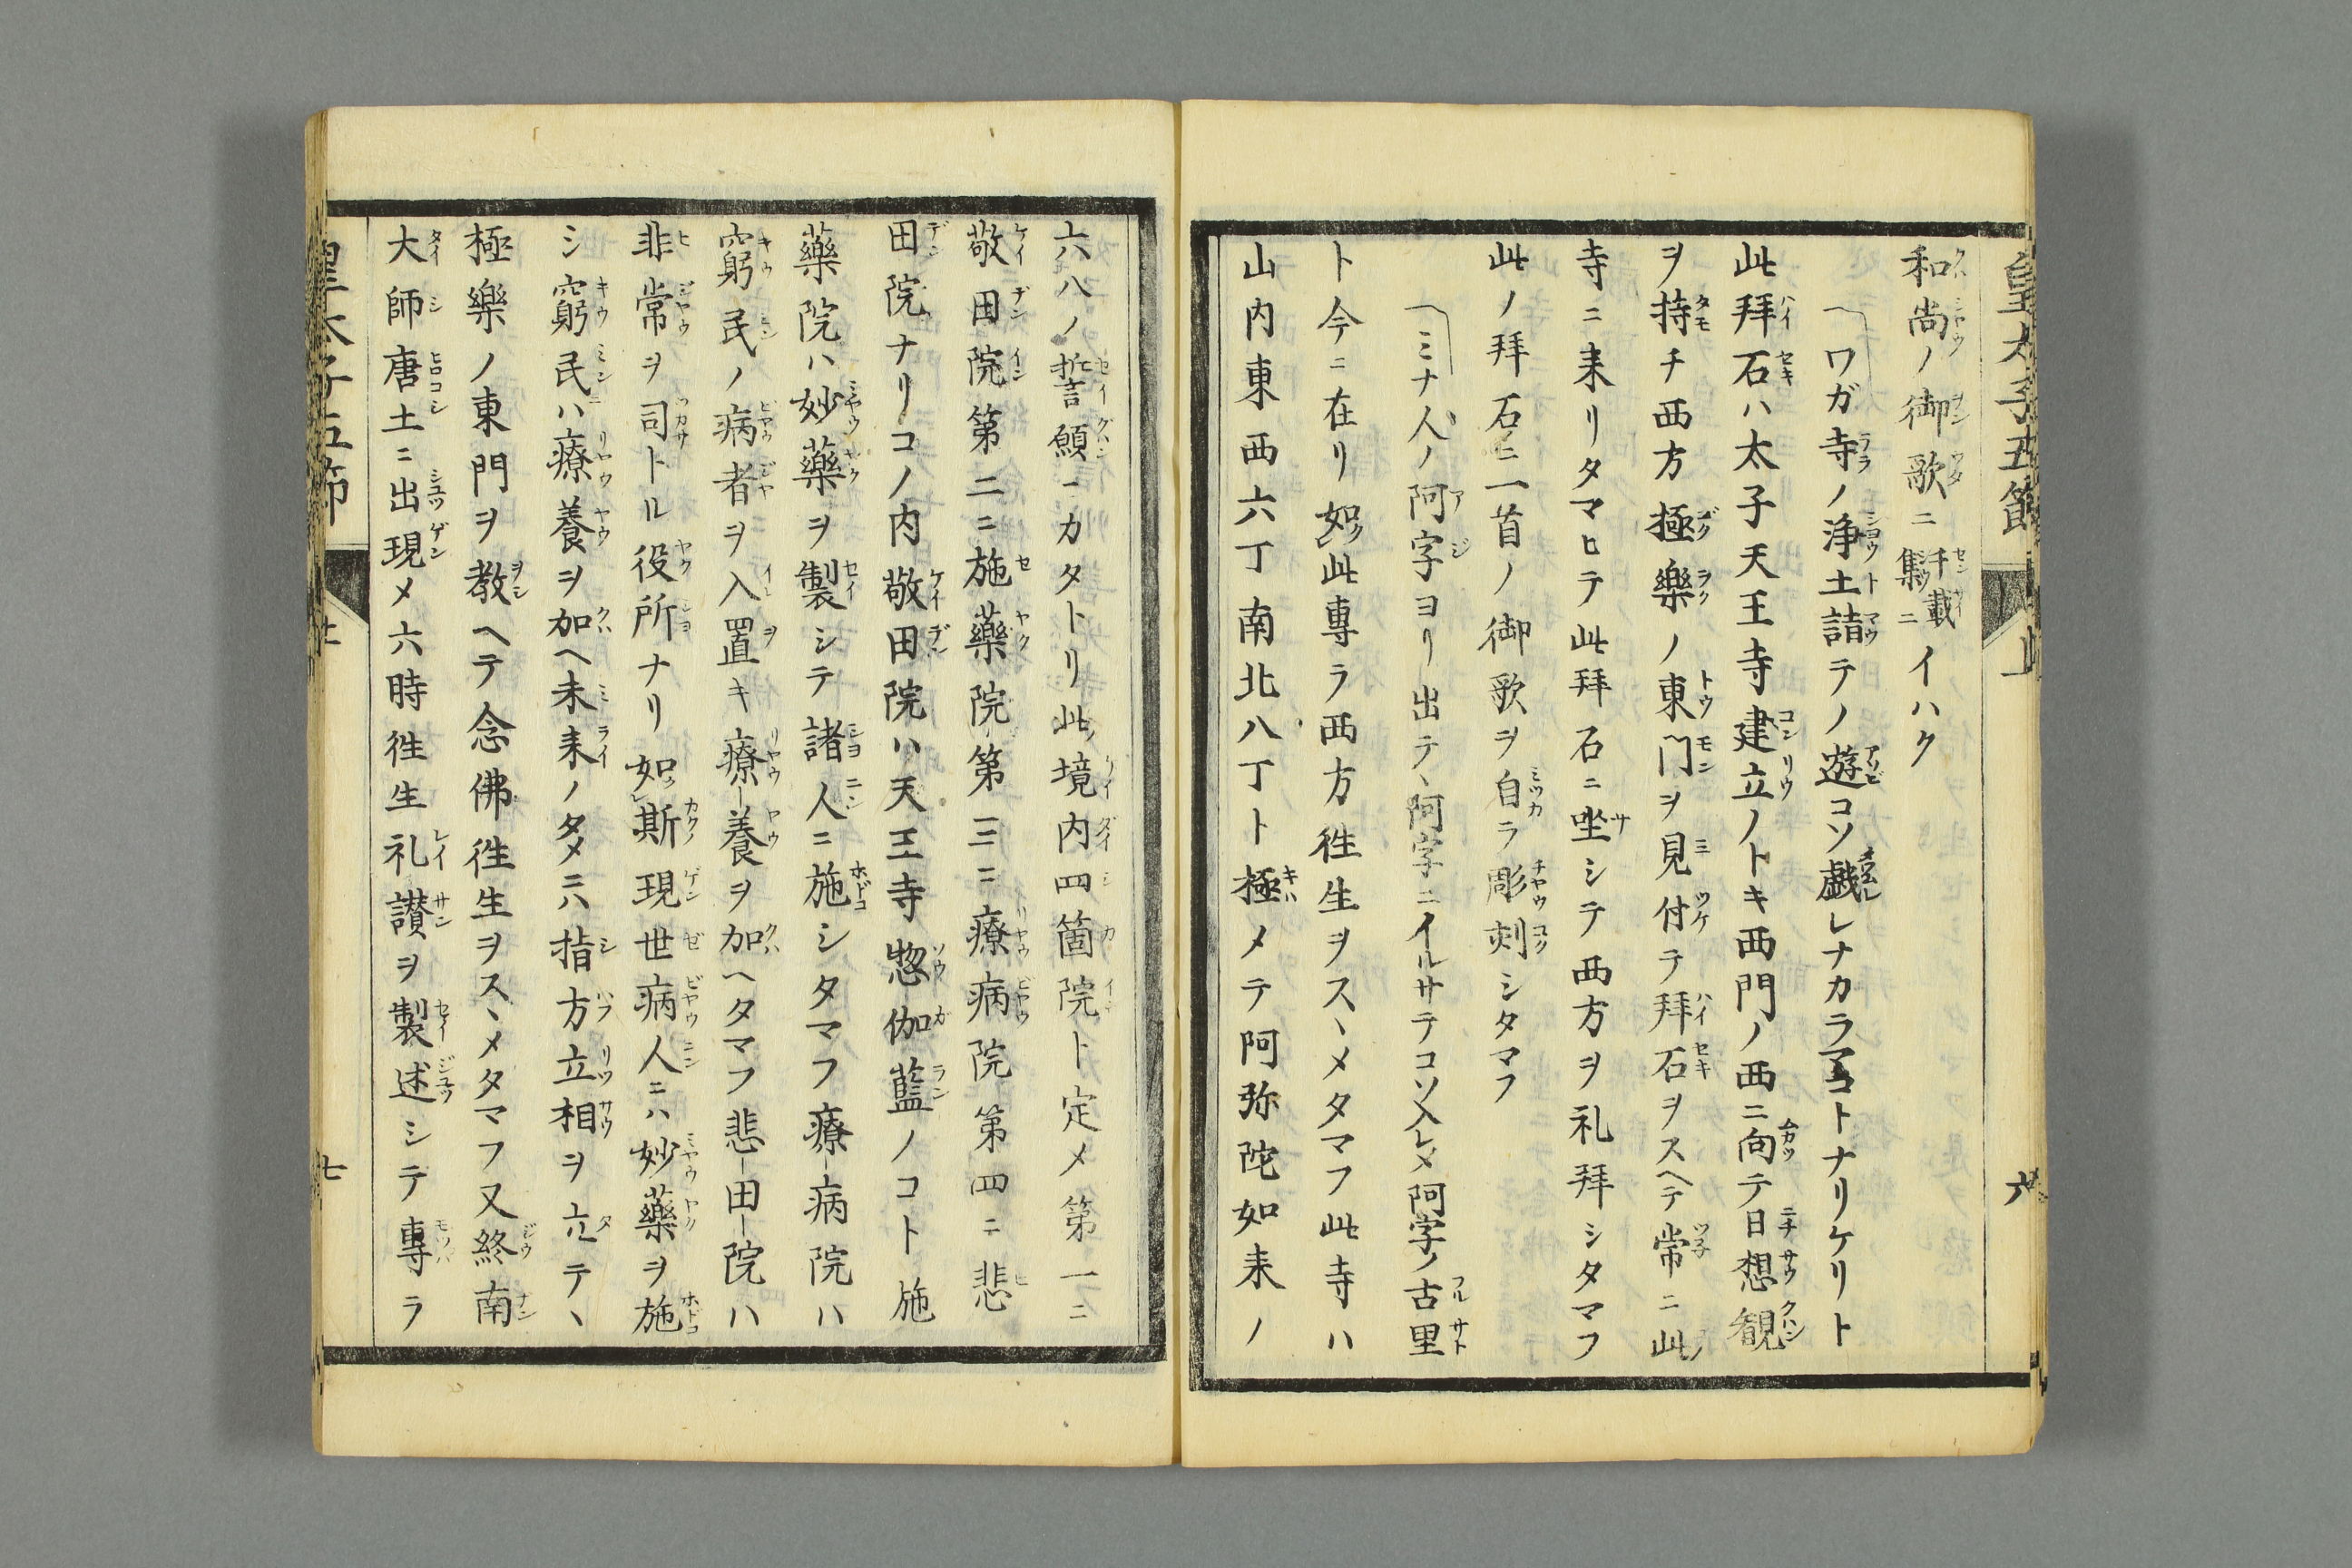 皇太子五節
上
六
和尚ノ御歌ニ千載集ニイハク
ワガ寺ノ浄土詣テノ遊コソ戯レナカラマコトナリケリト
此拜石ハ太子天王寺建立ノトキ西門ノ西ニ向テ日想観
ヲ持チ西方極樂ノ東門ヲ見付テ拜石ヲスヘテ常ニ此
寺ニ来リタマヒテ此拜石ニ坐シテ西方ヲ礼拜シタマフ
此ノ拜石ニ一首ノ御歌ヲ自ラ彫刻シタマフ
ミナ人ノ阿字ヨリ出テヽ阿字ニイルサテコソ入レメ阿字ノ古里
ト今ニ在リ如此専ラ西方徃生ヲスヽメタマフ此寺ハ
山内東西六丁南北八丁ト極メテ阿弥陀如来ノ
六八ノ誓願ニカタトリ此境内四箇院ト定メ第一ニ
敬田院第二ニ施藥院第三ニ療病院第四ニ悲
田院ナリコノ内敬田院ハ天王寺惣伽藍ノコト施
藥院ハ妙藥ヲ製シテ諸人ニ施シタマフ療病院ハ
窮民ノ病者ヲ入置キ療養ヲ加ヘタマフ悲田院ハ
非常ヲ司トル役所ナリ如斯現世病人ニハ妙藥ヲ施
シ窮民ハ療養ヲ加ヘ未来ノタメニハ指方立相ヲ立テヽ
極樂ノ東門ヲ教ヘテ念佛徃生ヲスヽメタマフ又終南
大師唐土ニ出現メ六時徃生礼讃ヲ製述シテ専ラ
皇太子五節
上
七